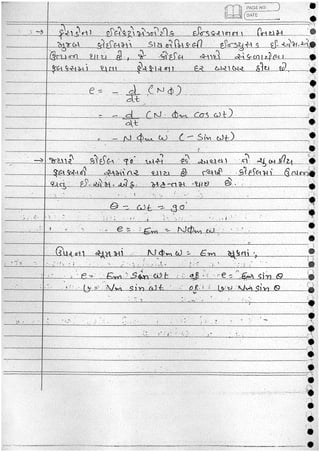 PAGE NO.
DATE
→ ફેરાડેના ઈલેક્ટ્રોમેગ્નેટિક ઈન્ડક્શનના નિયમ
મુજબ કોઈલમાં ડાયનેમિકલી ઈન્ડ્યુસ્ડ ઈ.એમ.એફ
ઉત્પન્ન થાય છે, જે કોઈલ સાથે સંકળાયેલા
ફ્લક્સમાં થતા ફેરફારના દર બરાબર હોય છે.
e = - d/dt (NΦ)
= - d/dt (N· Φm cos ωt)
= - N Φm ω (- Sin ωt)
→ જ્યારે કોઈલ 90° પાસે હો અથવા તે ચુંબકીય
ફ્લક્સને સમાંતર થાય છે ત્યારે કોઈલમાં ઉત્પન્ન
થતું ઈ.એમ.એફ. મહત્તમ થાય છે.
θ = ωt = 90°
e = Em = NΦm ω
ઉપરના સૂત્રમાં NΦm ω = Em મૂકતાં,
e = Em Sin ωt e = Em sin θ
v = Vm sin ωt v = Vm sin θ